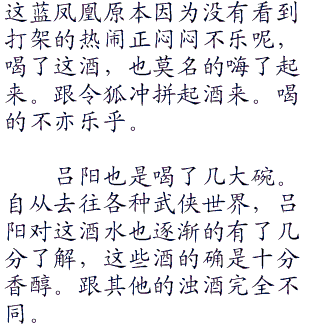 这蓝凤凰原本因为没有看到
打架的热闹正闷闷不乐呢，
喝了这酒，也莫名的嗨了起
来。跟令狐冲拼起酒来。喝
的不亦乐乎。
吕阳也是喝了几大碗。
自从去往各种武侠世界，吕
阳对这酒水也逐渐的有了几
分了解，这些酒的确是十分
香醇。跟其他的浊酒完全不
同。